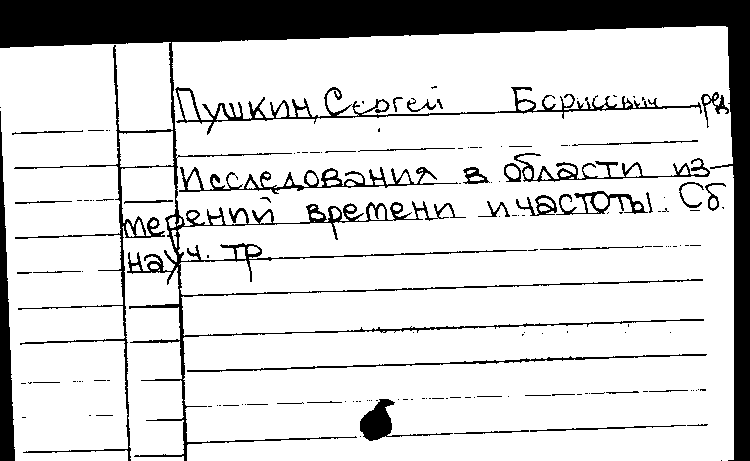 Пушкин, Сергей Борисович, ред.
Исследования в области из-
мерений времени и частоты. Сб.
науч. тр.